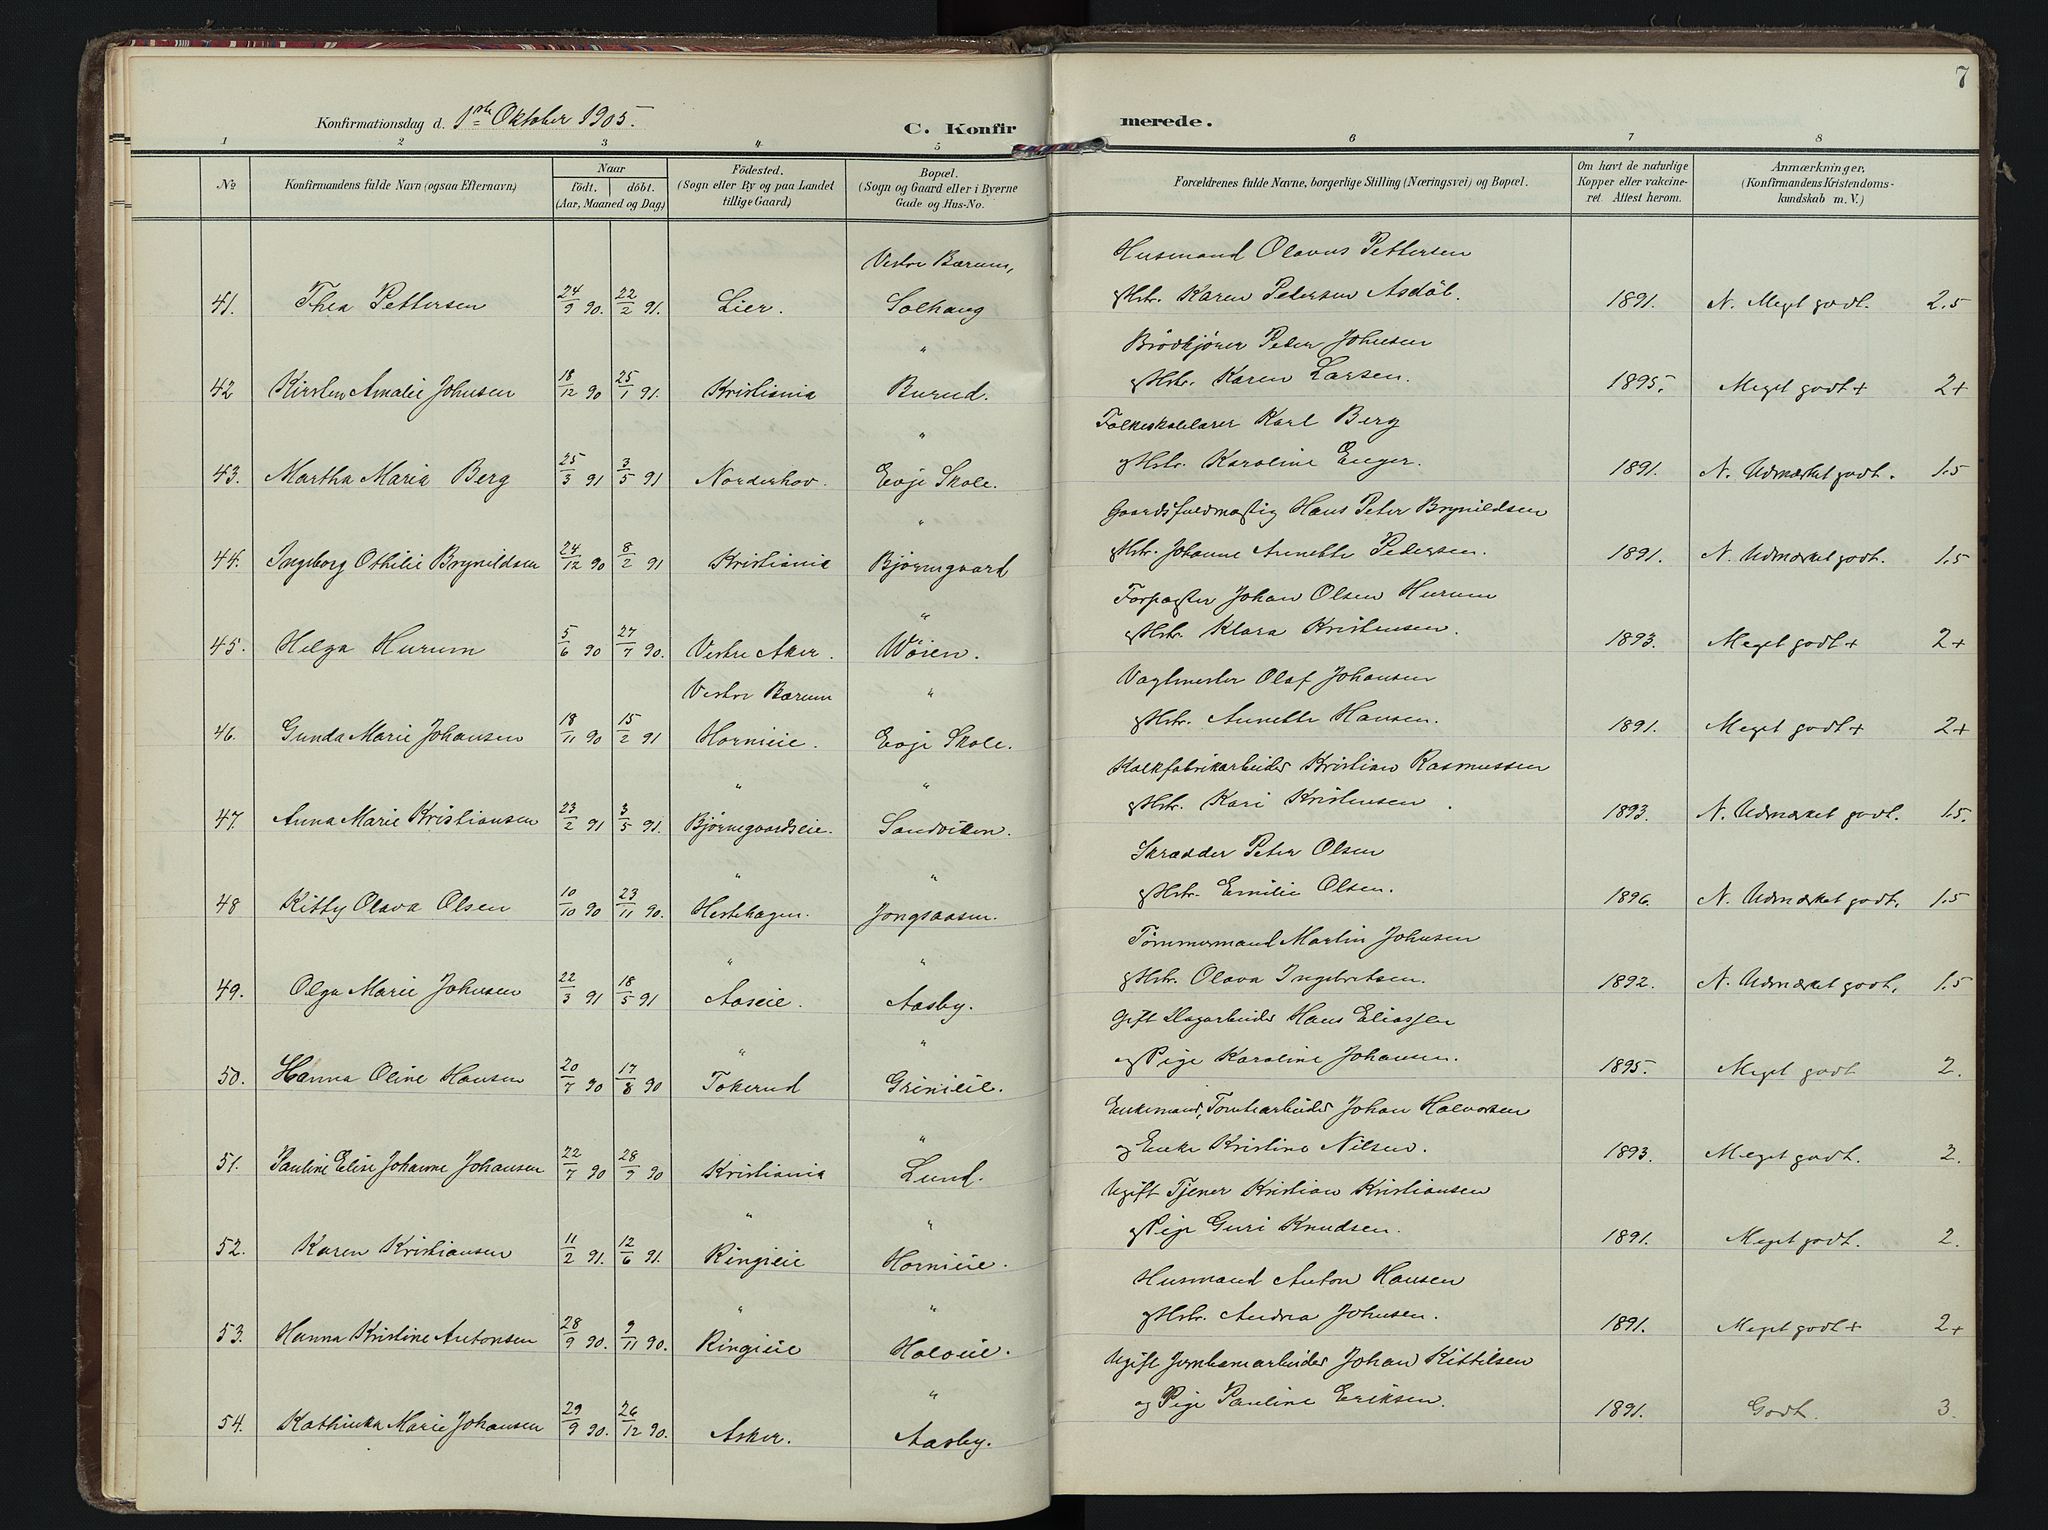 7
Konfirmationsdag d. 1ste Oktober 1905.
C. Konfirmerede.
1 2 3 4 5 6 7 8
No
Konfirmandens fulde Navn (ogsaa Efternavn)
Naar
født. døbt.
(Aar, Maaned og Dag)
Födested.
(Sogn eller By og paa Landet
tillige Gaard)
Bopæl.
(Sogn og Gaard eller i Byerne
Gade og Hus-No.
Forældrenes fulde Navne, borgerlige Stilling (Næringsvei) og Bopæl.
Om havt de naturlige
Kopper eller vakcine-
ret. Attest herom.
Anmærkninger,
(Konfirmandens Kristendoms-
kundskab m. V.)
Vestre Bærum, Husmand Olavus Pettersen
41. Thea Pettersen 24/9 90. 22/2 91. Lier. Solhaug &Hstr. Karen Petersen Asdøl. 1891. N. Meget godt. 2.5
" Brødkjører Peter Johnsen
42 Kirsten Amalie Johnsen 18/12 90 25/1 91. Kristiania Burud. &Hstr. Karen Larsen. 1895. Meget godt + 2+
" Folkeskolelærer Karl Berg
43. Martha Maria Berg 25/3 91 3/5 91 Norderhov. Evje Skole. &Hstr. Karoline Enger. 1891. N. Udmærket godt. 1.5
" Gaardsfuldmægtig Hans Peter Brynildsen
44. Ingeborg Othilie Brynildsen 24/12 90 8/2 91 Kristiania Bjørnegaard &Hstr. Johanne Annette Pedersen. 1891. N. Udmærket godt. 1.5
" Forpagter Johan Olsen Hurum
45. Helga Hurum 5/6 90 27/7 90. Vestre Aker. Wøien. &Hstr. Klara Kristensen. 1893. Meget godt + 2+
Vestre Bærum " Vagtmester Olaf Johansen
46. Gunda Marie Johansen 18/11 90 15/2 91 Hornieie. Evje Skole. &Hstr. Annette Hansen. 1891. Meget godt + 2+
" " Kalkfabrikarbeider Kristian Rasmussen
47. Anna Marie Kristiansen 23/2 91 3/5 91. Bjørnegaardseie. Sandviken. &Hstr. Kari Kristensen. 1893. N. Udmærket godt. 1.5.
" " Skrædder Peter Olsen
48 Kitty Olava Olsen 10/10 90 23/11 90. Hestehagen. Jongsaasen. &Hstr. Emilie Olsen. 1896. N. Udmærket godt. 1.5
" " Tømmermand Martin Johnsen
49. Olga Marie Johnsen 22/3 91 18/5 91 Aaseie. Aasby. &Hstr. Olava Ingebretsen. 1892. N. Udmærket godt. 1.5
" " Gift Dagarbeider Hans Eliassen
50. Hanna Oline Hansen 20/7 90 17/8 90 Tokerud Grinieie. og Pige Karoline Johansen. 1895. Meget godt 2.
" Enkemand, Tomtearbeider Johan Halvorsen
51. Pauline Elise Johanne Johansen 22/7 90 28/9 90 Kristiania Lund. og Enke Kristine Nilsen. 1893. Meget godt. 2.
" " Ugift Tjener Kristian Kristiansen
52. Karen Kristiansen 11/2 91. 12/6 91. Ringieie Hornieie. &Pige Guri Knudsen. 1891. Meget godt. 2.
" " Husmand Anton Hansen
53. Hanna Kristine Antonsen 28/9 90. 9/11 90. Ringieie Haloeie. &Hstr. Andrea Johnsen. 1891. Meget godt + 2+
" Ugift Jernbanearbeider Johan Kittilsen
54. Kathinka Marie Johansen 29/9 90. 26/12 90. Asker. Aasby. og Pige Pauline Eriksen. 1891. Godt. 3.